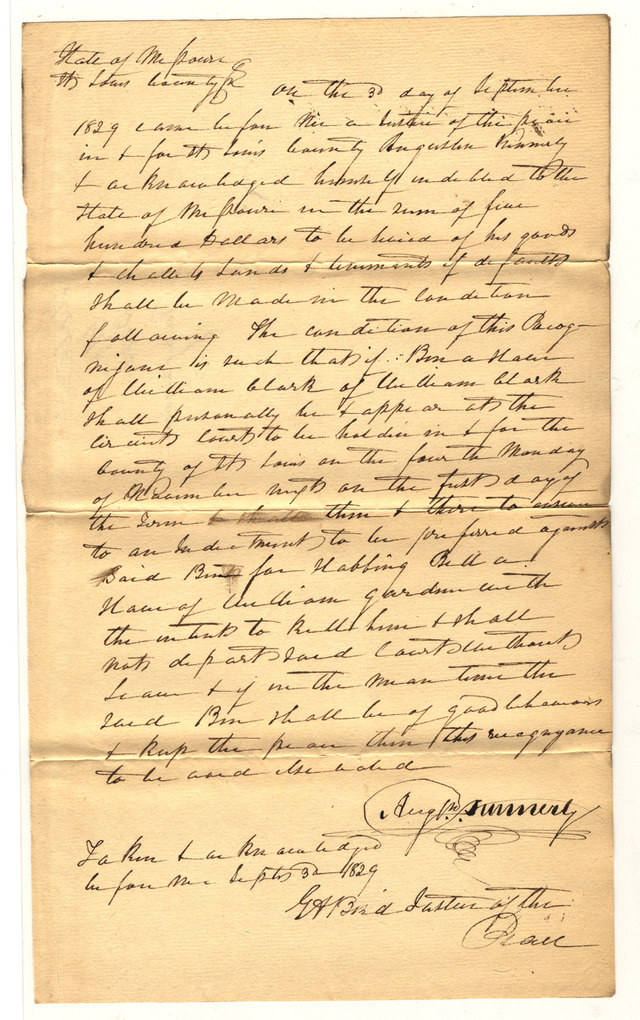 State of Missouri
St Louis County
On the 3d day of September
1829 came before me a Justice of the peace
in & for St Louis County Augustin Kennerly
& acknowledged himself indebted to the
State of Missouri in the sum of five
hundred Dollars to be levied of his goods
& chattels Lands & tenements if default
shall be made in the Condition
following The condition of this Recog-
nizance is such that if Ben a slave
of William Clark of William Clark
shall personally be & appear at the
Circuit Court to be holden in & for the
County of St Louis on the fourth Monday
of November next on the first day of
the Term then & there to answer
to an Indictment to be preferred against
Said Ben for Stabbing Bill a
slave of William Gordon with
the intent to kill him & shall
not depart said Court without
Leave & if in the mean time the
said Ben shall be of good behaviour
& keep the peace then this recognizance
to be void else valid
Aug Kennerly
Taken & acknowledged
before me Sept 3d 1829
Justice of the
Peace